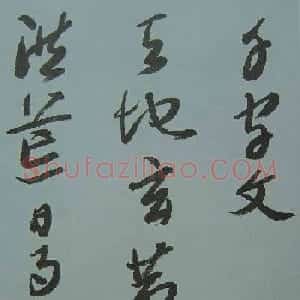 千字文
天地玄黄
洪荒日月
Shufaziliao.COM